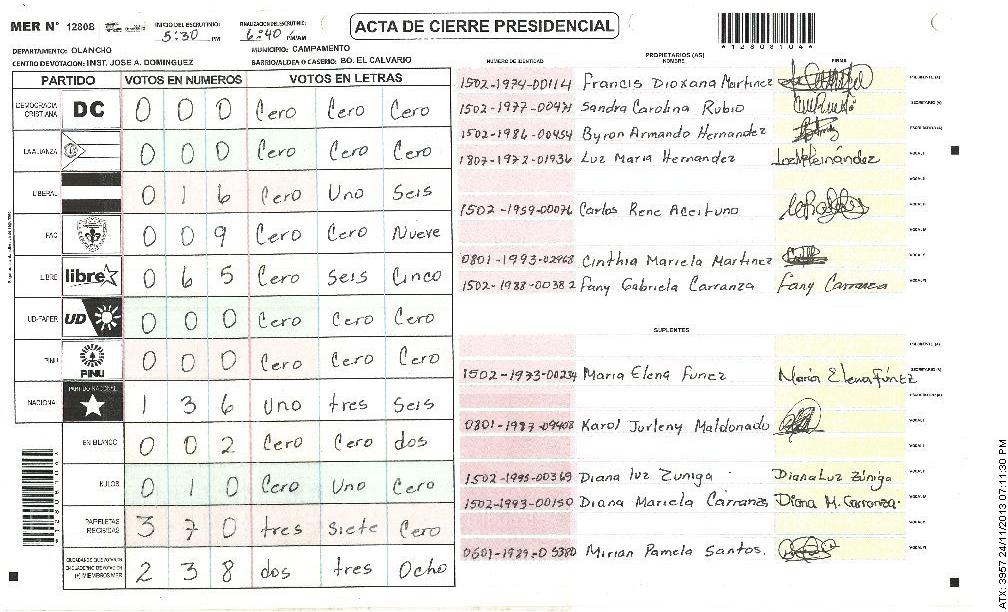 MER N° 12808 INICIO DEL ESCRUTINIO: 5:30 PM FINALIZACION DEL ESCRUTINIO: 6:40 PM/AM
ACTA DE CIERRE PRESIDENCIAL
*12808104*
DEPARTAMENTO: OLANCHO MUNICIPIO: CAMPAMENTO
CENTRO DE VOTACION: INST. JOSE A. DOMINGUEZ BARRIO/ALDEA O CASERIO: BO. EL CALVARIO
PARTIDO VOTOS EN NUMEROS VOTOS EN LETRAS
DEMOCRACIA CRISTIANA DC 0 0 0 Cero Cero Cero
LA ALIANZA 0 0 0 Cero Cero Cero
LIBERAL 0 1 6 Cero Uno Seis
PAC 0 0 9 Cero Cero Nueve
LIBRE libre 0 6 5 Cero seis Cinco
UD-FAPER UD 0 0 0 Cero Cero Cero
PINU PINU 0 0 0 Cero Cero Cero
NACIONAL PARTIDO NACIONAL 1 3 6 Uno tres Seis
EN BLANCO 0 0 2 Cero Cero dos
NULOS 0 1 0 Cero Uno Cero
PAPELETAS RECIBIDAS 3 7 0 tres siete Cero
CIUDADANOS QUE VOTARON EN CUADERNO DE VOTACION (+) MIEMBROS MER 2 3 8 dos tres Ocho
PROPIETARIOS (AS)
NUMERO DE IDENTIDAD NOMBRE FIRMA
1502-1974-00114 Francis Dioxana Martinez PRESIDENTE (A)
1502-1977-00471 Sandra Carolina Rubio SECRETARIO (A)
1502-1986-00454 Byron Armando Hernandez ESCRUTADOR (A)
1807-1972-01936 Luz Maria Hernandez Luz M Hernández VOCAL I
VOCAL II
1502-1959-00076 Carlos Rene Aceituno VOCAL III
VOCAL IV
0801-1993-02968 Cinthia Mariela Martinez VOCAL V
1502-1988-00382 Fany Gabriela Carranza Fany Carranza VOCAL VI
SUPLENTES
PRESIDENTE (A)
1502-1973-00234 Maria Elena Funez Maria Elena Fúnez SECRETARIO (A)
ESCRUTADOR (A)
0801-1987-09408 Karol Jurleny Maldonado VOCAL I
VOCAL II
1502-1995-00369 Diana luz Zuniga Diana Luz Zúniga VOCAL III
1502-1993-00150 Diana Mariela Carranza Diana M. Carranza. VOCAL IV
VOCAL V
0601-1989-05380 Mirian Pamela Santos. VOCAL VI
ATX: 3957 24/11/2013 07:11:30 PM